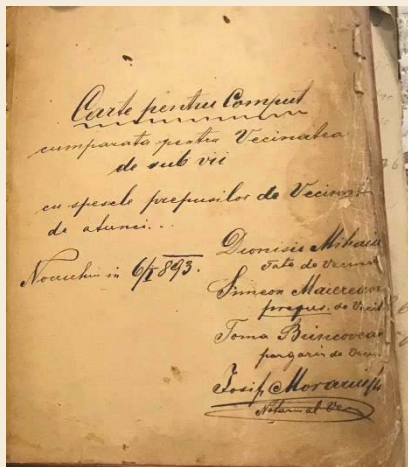 Carte pentru Comput
cumparata pentru Vecinatea
de sub vii
cu spesele prepusilor de Vecinat
de atunci...
Nocrichiu in 6/I 893.
Dionisie Mihaiu
Tata de vecinat
Simeon Maierean
prepus. de Vecit
Toma
pargariu de Vecin
Iosif
Notariul Vec